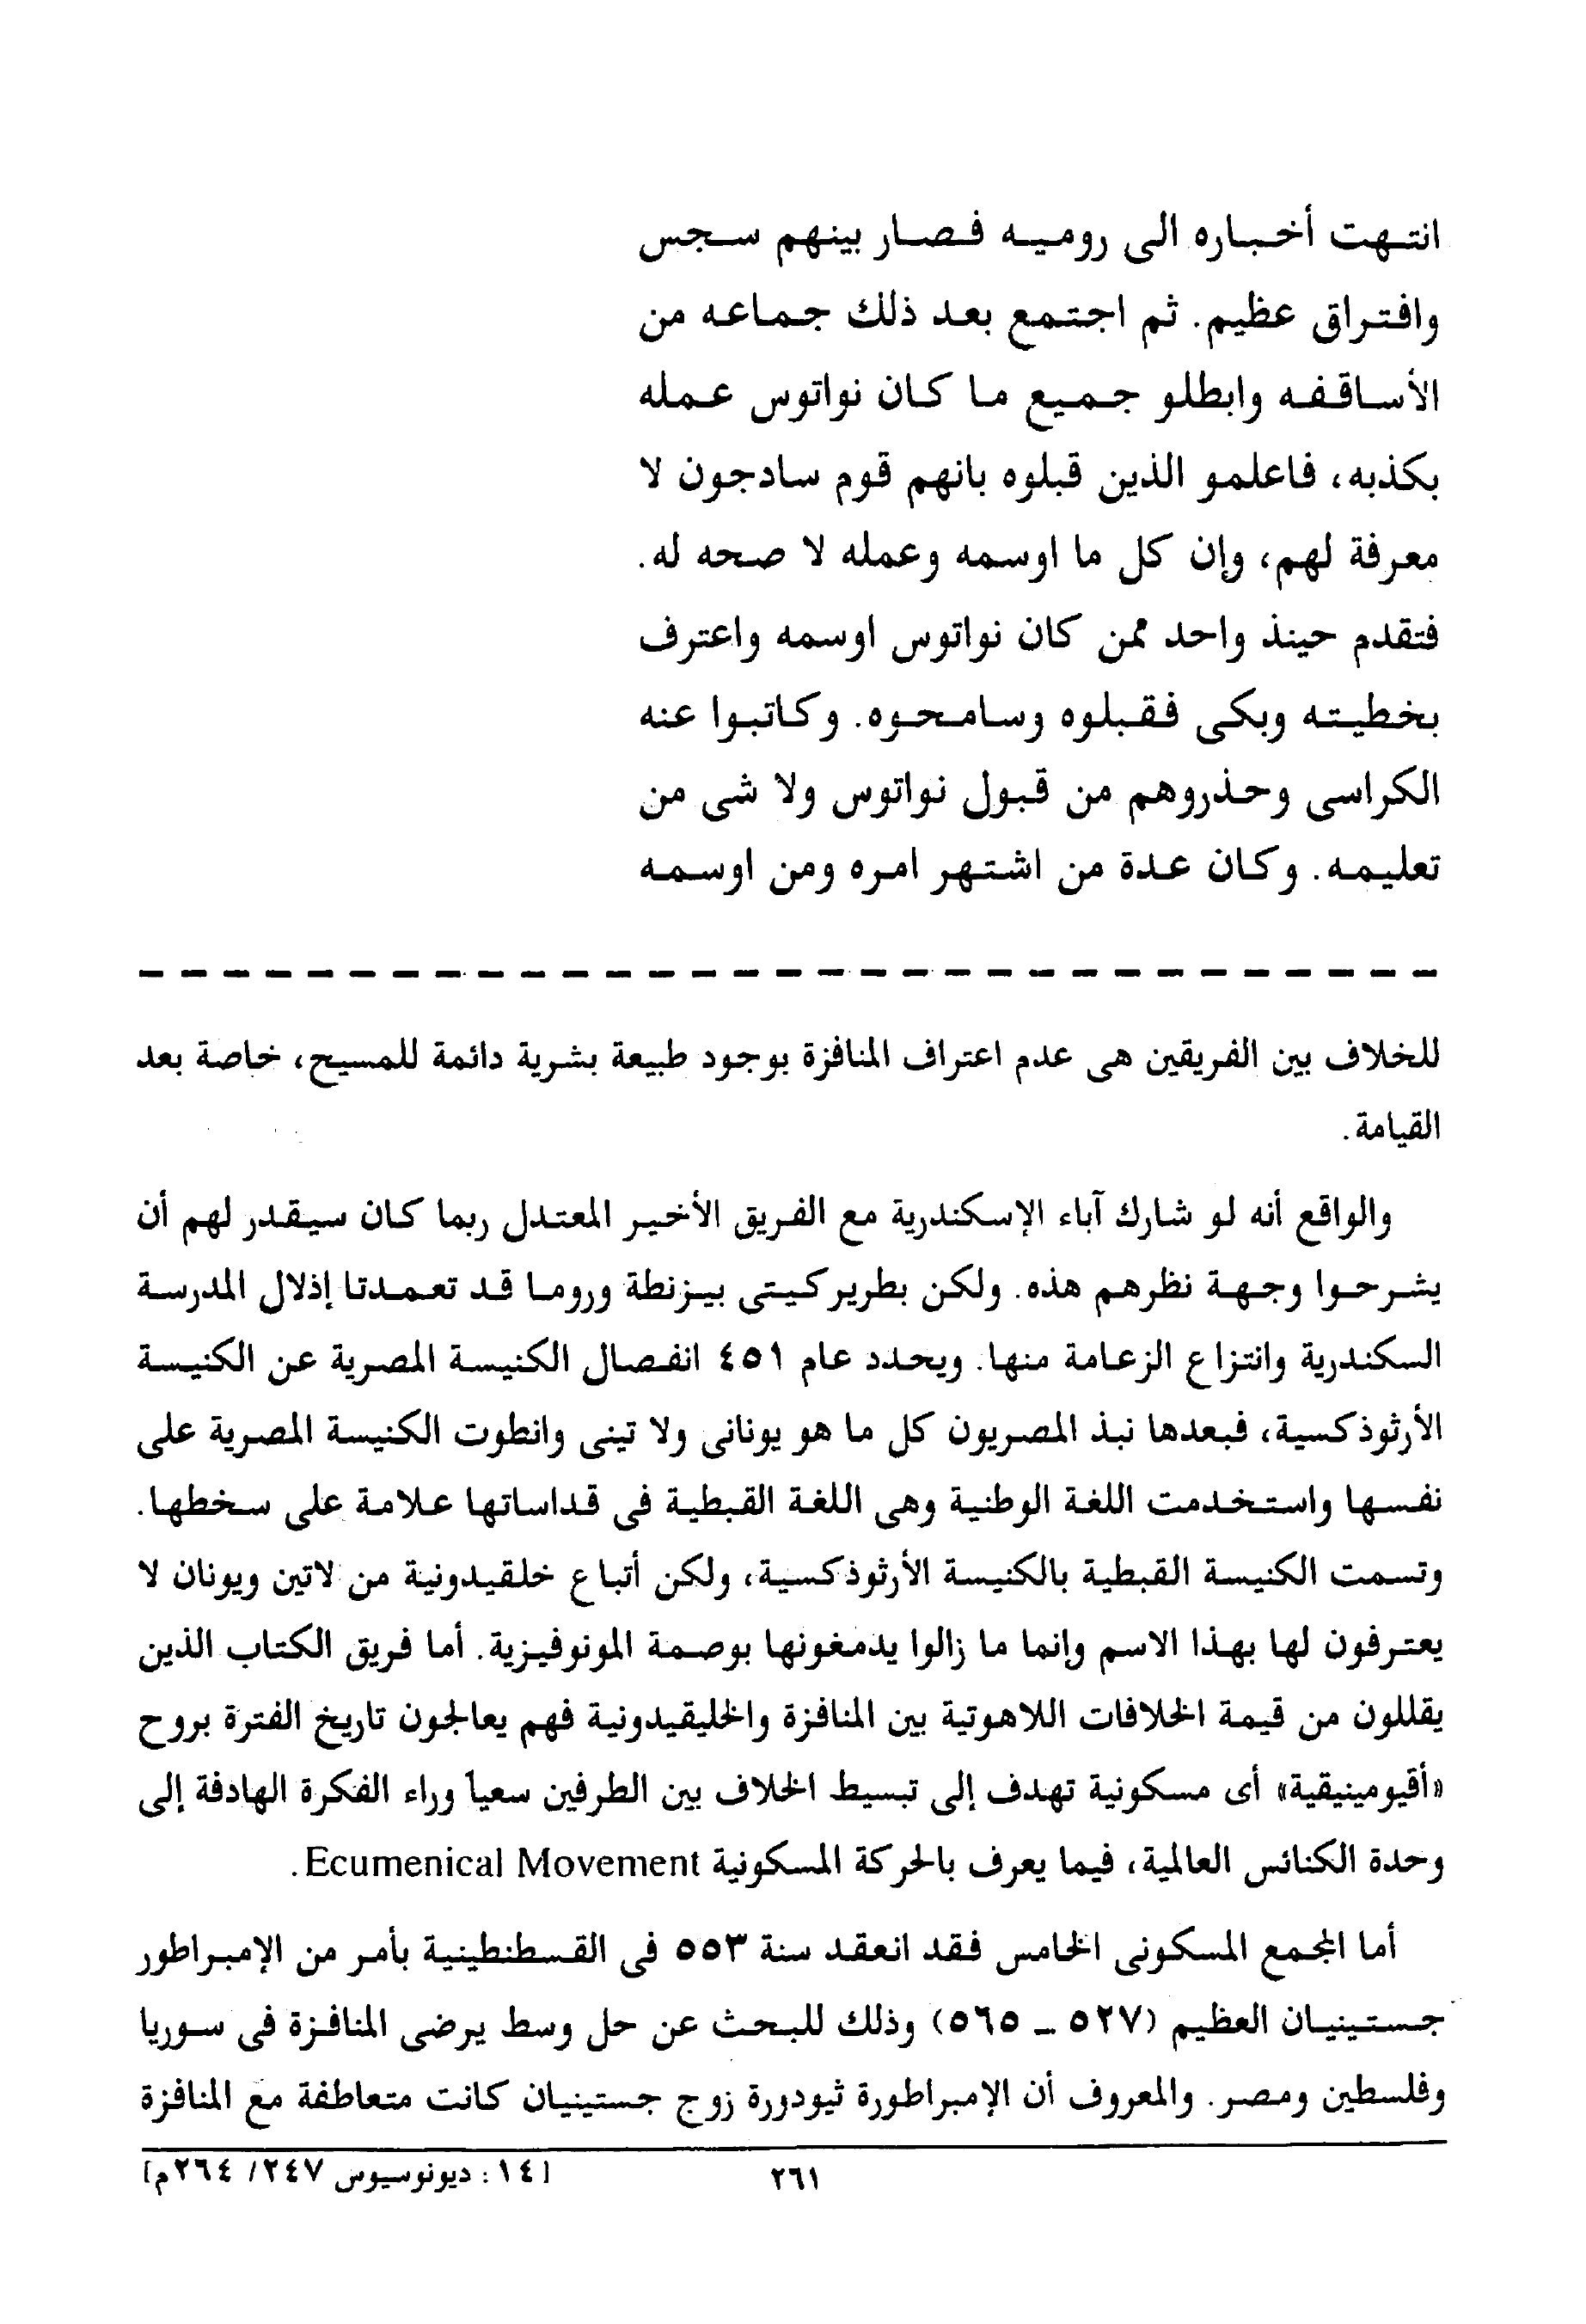 انتهت أخباره الى روميه فصار بينهم سجس
وافتراق عظيم. ثم اجتمع بعد ذلك جماعه من
الأساقفه وابطلو جميع ما كان نواتوس عمله
بكذبه، فاعلمو الذين قبلوه بانهم قوم سادجون لا
معرفة لهم، وإن كل ما اوسمه وعمله لا صحه له.
فتقدم حينذ واحد ممن كان نواتوس اوسمه واعترف
بخطيته وبكى فقبلوه وسامحوه. وكاتبوا عنه
الكراسى وحذروهم من قبول نواتوس ولا شى من
تعليمه. وكان عدة من اشتهر امره ومن اوسمه
للخلاف بين الفريقين هى عدم اعتراف المنافزة بوجود طبيعة بشرية دائمة للمسيح، خاصة بعد
القيامة.
والواقع أنه لو شارك آباء الإسكندرية مع الفريق الأخير المعتدل ربما كان سيقدر لهم أن
يشرحوا وجهة نظرهم هذه. ولكن بطريركيتى بيزنطة وروما قد تعمدتا إذلال المدرسة
السكندرية وانتزاع الزعامة منها. ويحدد عام ٤٥١ انفصال الكنيسة المصرية عن الكنيسة
الأرثوذكسية، فبعدها نبذ المصريون كل ما هو يونانى ولا تينى وانطوت الكنيسة المصرية على
نفسها واستخدمت اللغة الوطنية وهى اللغة القبطية فى قداساتها علامة على سخطها.
وتسمت الكنيسة القبطية بالكنيسة الأرثوذكسية، ولكن أتباع خلقيدونية من لاتين ويونان لا
يعترفون لها بهذا الاسم وإنما ما زالوا يدمغونها بوصمة المونوفيزية. أما فريق الكتاب الذين
يقللون من قيمة الخلافات اللاهوتية بين المنافزة والخليقيدونية فهم يعالجون تاريخ الفترة بروح
«أقيومينيقية» أى مسكونية تهدف إلى تبسيط الخلاف بين الطرفين سعيا وراء الفكرة الهادفة إلى
وحدة الكنائس العالمية، فيما يعرف بالحركة المسكونية Ecumenical Movement.
أما المجمع المسكونى الخامس فقد انعقد سنة ٥٥٣ فى القسطنطينية بأمر من الإمبراطور
جستينيان العظيم (٥٢٧ ـ ٥٦٥) وذلك للبحث عن حل وسط يرضى المنافزة فى سوريا
وفلسطين ومصر. والمعروف أن الإمبراطورة ثيودورة زوج جستينيان كانت متعاطفة مع المنافزة
٢٦١
[١٤: ديونوسيوس ٢٤٧/ ٢٦٤م]